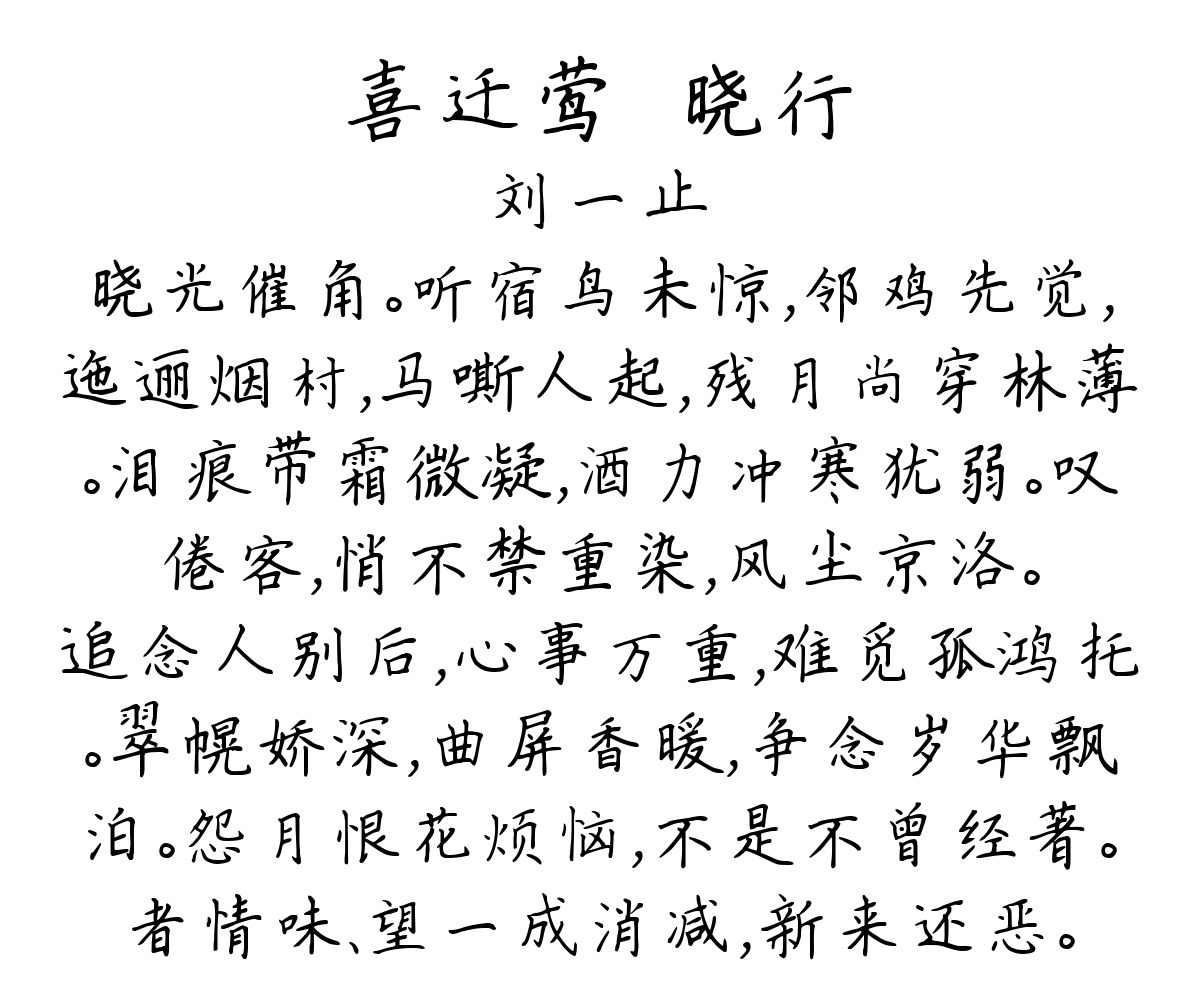 喜迁莺 晓行
刘一止
晓光催角。听宿鸟未惊,邻鸡先觉,
迤逦烟村,马嘶人起,残月尚穿林薄
。泪痕带霜微凝,酒力冲寒犹弱。叹
倦客,悄不禁重染,风尘京洛。
追念人别后,心事万重,难觅孤鸿托
。翠幌娇深,曲屏香暖,争念岁华飘
泊。怨月恨花烦恼,不是不曾经著。
者情味、望一成消减,新来还恶。